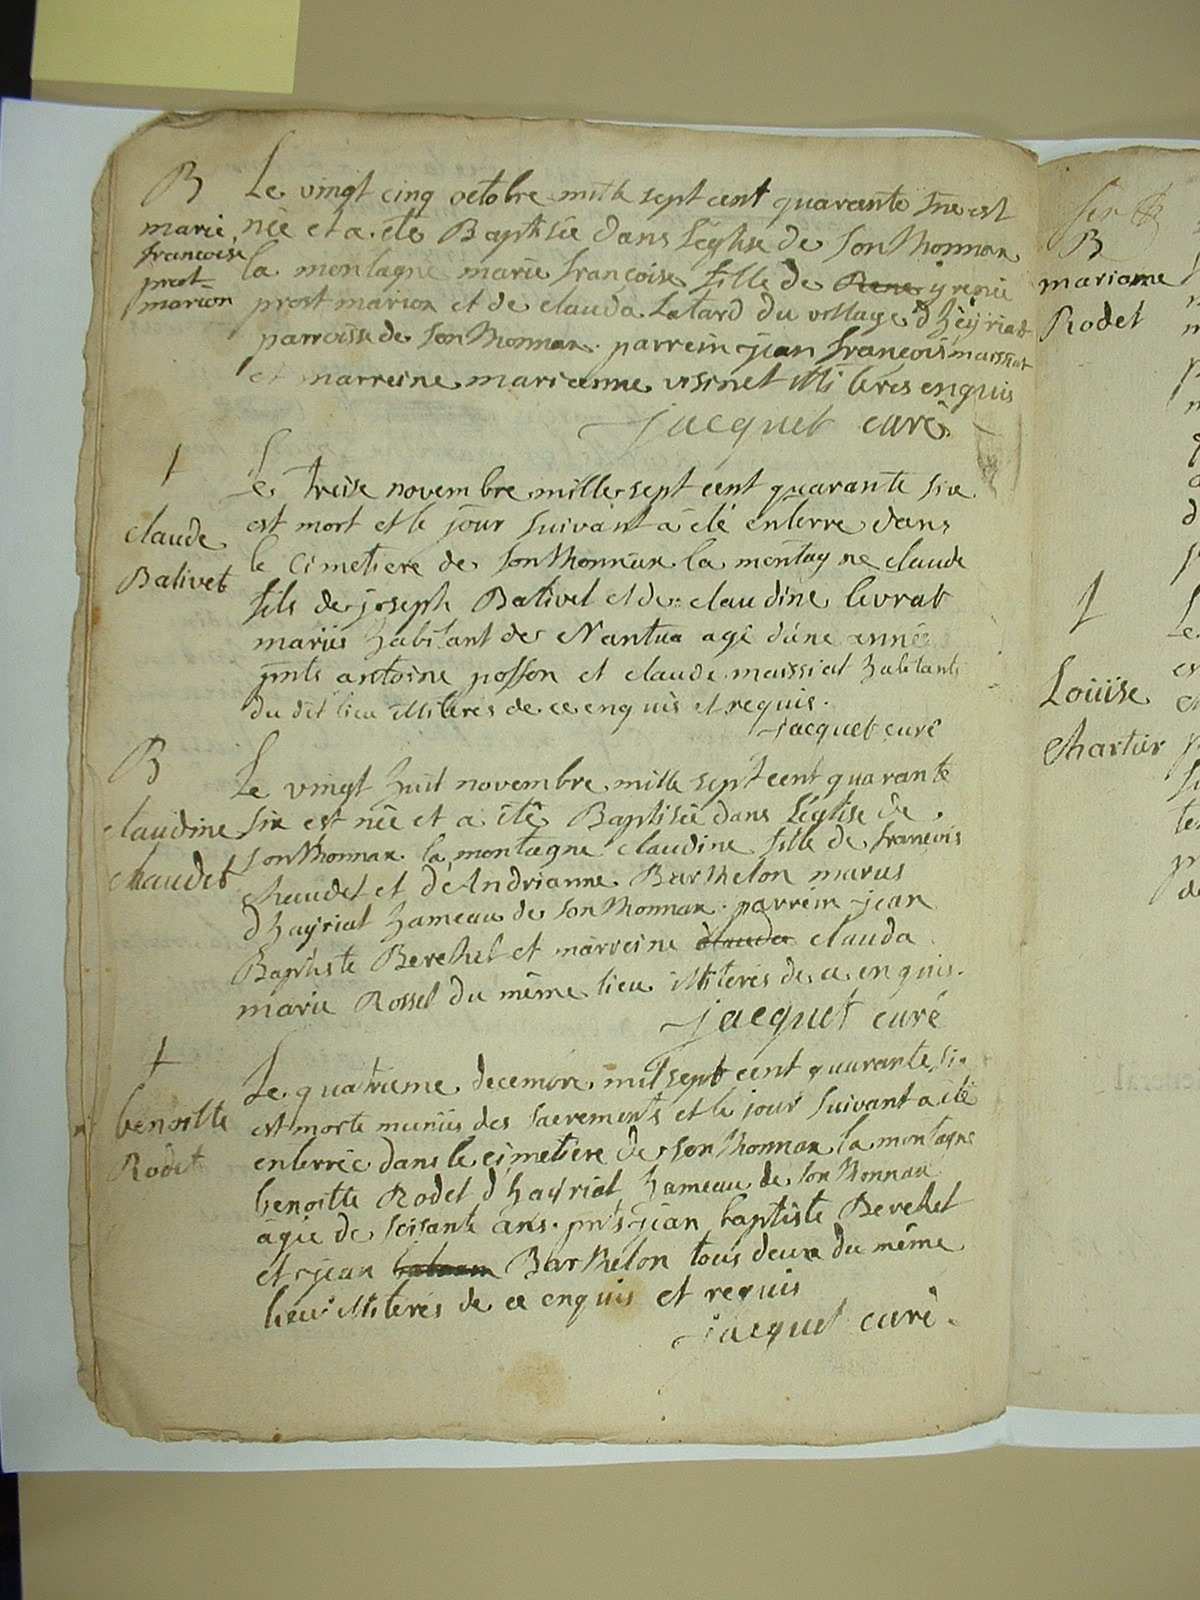 B
marie
francoise
prost
marion
Le vingt cinq octobre mille sept cent quarante six est
née et a été Baptisée dans Léglise de Sonthonnax
la montagne marie françoise fille de Rene yrenée
prost marion et de clauda Latard du village d'heyriat
parroisse de Sonthonnax. parrein jean françois maissiat
et marreine marianne visinet illiterés enquis
jacquet curé
†
claude
Balivet
Le treise novembre mille sept cent quarante six
est mort et le jour suivant a été enterré dans
le cimetiere de Sonthonnax la montagne claude
fils de joseph Balivet et de claudine levrat
mariés habitant de Nantua agé d'une année
pnts antoine posson et claude maissiat habitants
du dit lieu illiterés de ce enquis et requis.
jacquet curé
B
claudine
chaudet
Le vingt huit novembre mille sept cent quarante
six est née et a été Baptisée dans Léglise de
Sonthonnax la montagne claudine fille de francois
chaudet et d'Andrianne Barthelon mariés
d'hayriat hameau de Sonthonnax. parrein jean
Baptiste Berchet et marreine clauda clauda
marie Rossel du même lieu illiterés de ce enquis.
jacquet curé
†
benoitte
Rodet
Le quatrieme decembre mil sept cent quarante six
est morte munie des sacrements et le jour suivant a été
enterrée dans le cimetiere de Sonthonnax la montagne
benoitte Rodet d'hayriat hameau de Sonthonnax
agée de soisante ans. pnts jean baptiste Berchet
et jean Barthelon tous deux du même
lieu illiterés de ce enquis et requis
jacquet curé.
B
marianne
Rodet
†
Louise
chartier